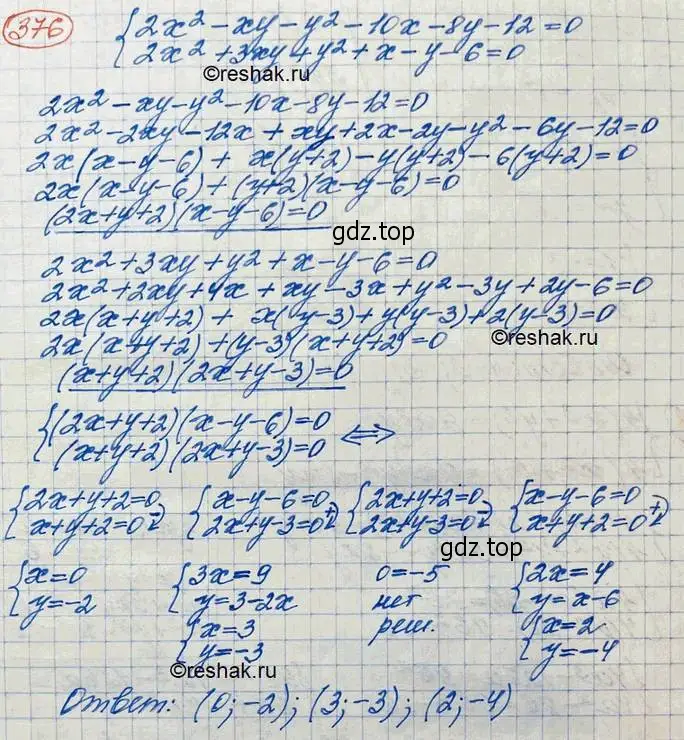 376
{2x² - xy - y² - 10x - 8y - 12 = 0
{2x² + 3xy + y² + x - y - 6 = 0
©reshak.ru
2x² - xy - y² - 10x - 8y - 12 = 0
2x² - 2xy - 12x + xy + 2x - 2y - y² - 6y - 12 = 0
2x(x - y - 6) + x(y + 2) - y(y + 2) - 6(y + 2) = 0
2x(x - y - 6) + (y + 2)(x - y - 6) = 0
(2x + y + 2)(x - y - 6) = 0
gdz.top
2x² + 3xy + y² + x - y - 6 = 0
2x² + 2xy + 4x + xy - 3x + y² - 3y + 2y - 6 = 0
2x(x + y + 2) + x(y - 3) + y(y - 3) + 2(y - 3) = 0
2x(x + y + 2) + (y - 3)(x + y + 2) = 0
(x + y + 2)(2x + y - 3) = 0
©reshak.ru
{(2x + y + 2)(x - y - 6) = 0
{(x + y + 2)(2x + y - 3) = 0 ⟺
{2x + y + 2 = 0 {x - y - 6 = 0 {2x + y + 2 = 0 {x - y - 6 = 0
{x + y + 2 = 0 - {2x + y - 3 = 0 + {2x + y - 3 = 0 - {x + y + 2 = 0 +
gdz.top
{x = 0 {3x = 9 0 = -5 {2x = 4
{y = -2 {y = 3 - 2x нет {y = x - 6
{x = 3 реш. {x = 2
{y = -3 {y = -4
©reshak.ru
Ответ: (0; -2); (3; -3); (2; -4)